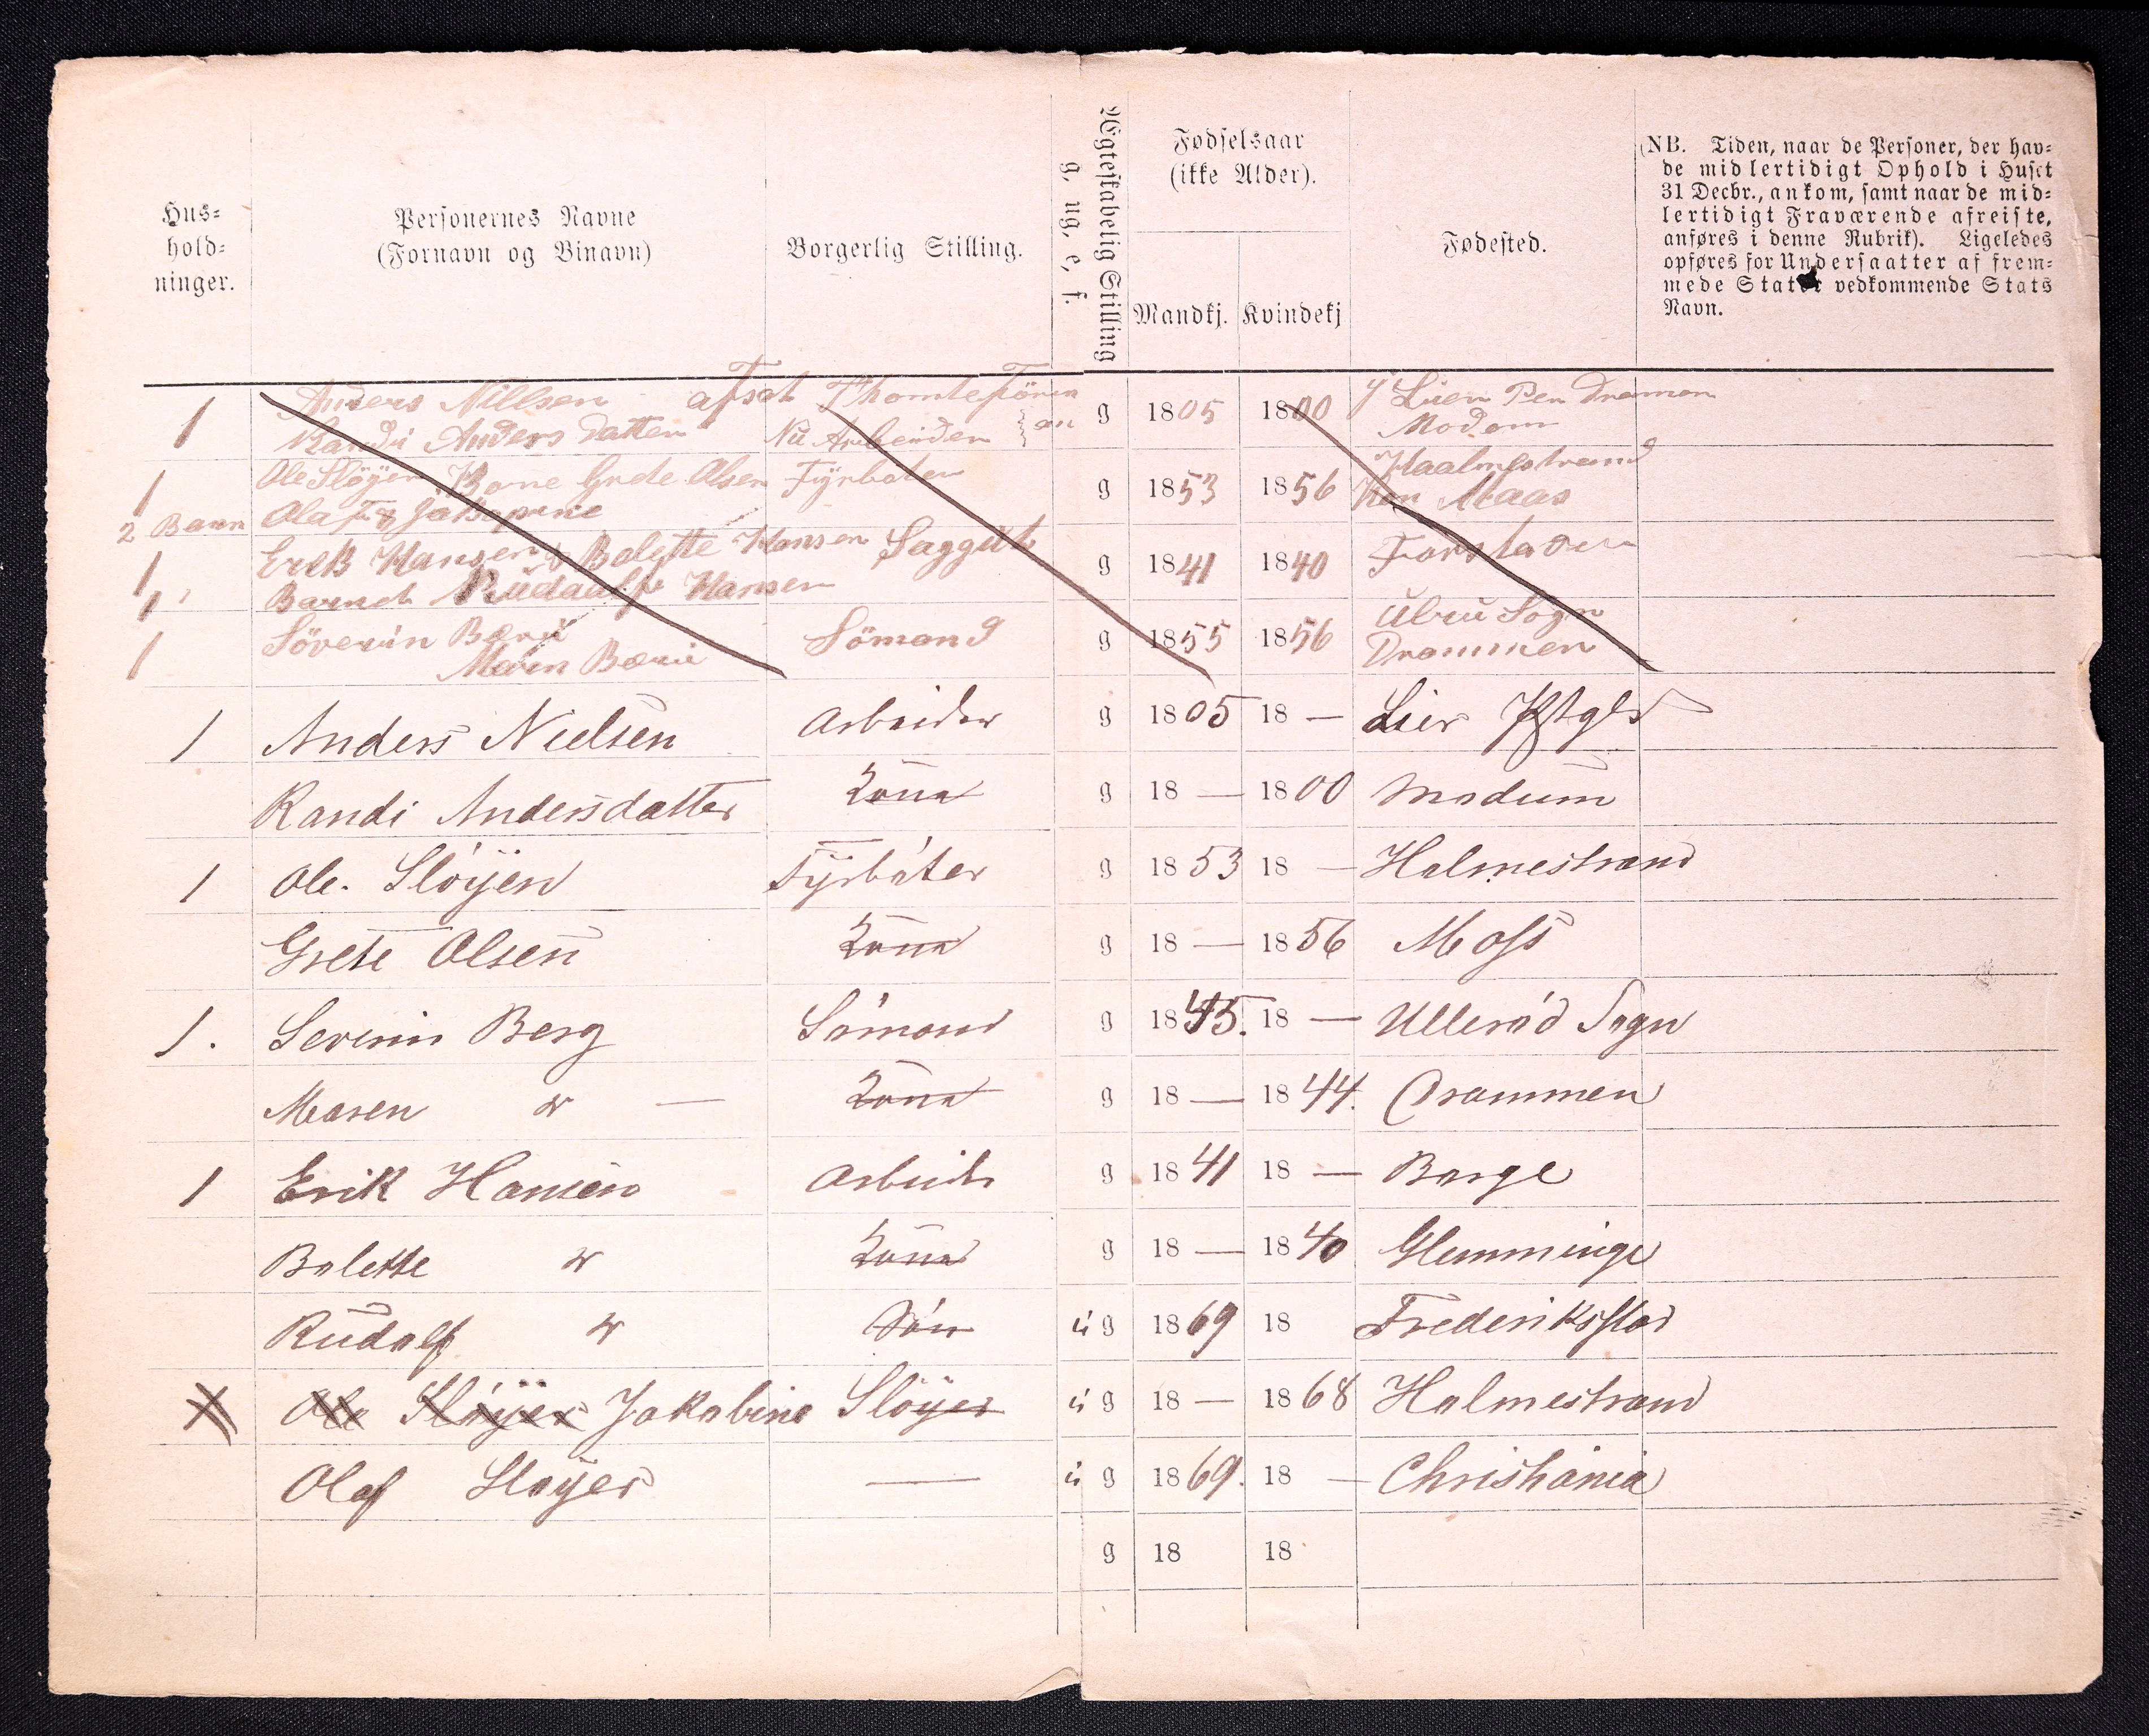 Hus-
hold-
ninger.
Personernes Navne
(Fornavn og Binavn)
Borgerlig Stilling.
Ægteskabelig Stilling
g, ug, e, f.
Fødselsaar
(ikke Alder).
Mandkj.
Kvindekj
Fødested.
(NB. Tiden, naar de Personer, der hav-
de midlertidigt Ophold i Huset
31 Decbr., ankom, samt naar de mid-
lertidigt Fraværende afreiste,
anføres i denne Rubrik). Ligeledes
opføres for Undersaatter af frem-
mede Stater vedkommende Stats
Navn.
1 Anders Nillsen afsat g 1805 1800
Randi Anders Datter Nu Arbeider Modom
1 Ole Slöyer Grete Olsen Fyrböter g 1853 1856 Haalmestrand
2 Barn Maas
1 Erik Hansen & Bolette Hansen g 1841 1840
1 Barnet Rudaalf Hansen
1 Söverin Sömand g 1855 1856 Sogn
Maren Drammen
1 Anders Nielsen Arbeider g 1805 18 — Lier Pstgld
Randi Andersdatter Kone g 18 — 1800 Modum
1 Ole Slöyer Fyrböter g 1853 18 — Holmestrand
Grete Olsen Kone g 18 — 1856 Moss
1. Severin Berg Sömand g 1845. 18 — Ulleröd Sogn
Maren — Kone g 18 — 1844. Drammen
1 Erik Hansen Arbeider g 1841 18 — Borge
Bolette Kone g 18 — 1840 Glemminge
Rudolf Sön ug 1869 18 Frederiksstad
Ole Slöyer Jakobine Slöyer ug 18 — 1868 Holmestrand
Olaf Slöyer — ug 1869. 18 — Christiania
g 18 18